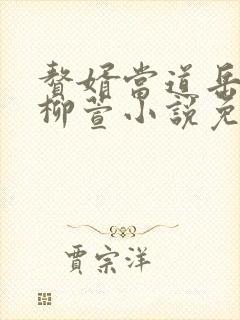 贅婿當道岳
柳萱小說免
賈宗洋